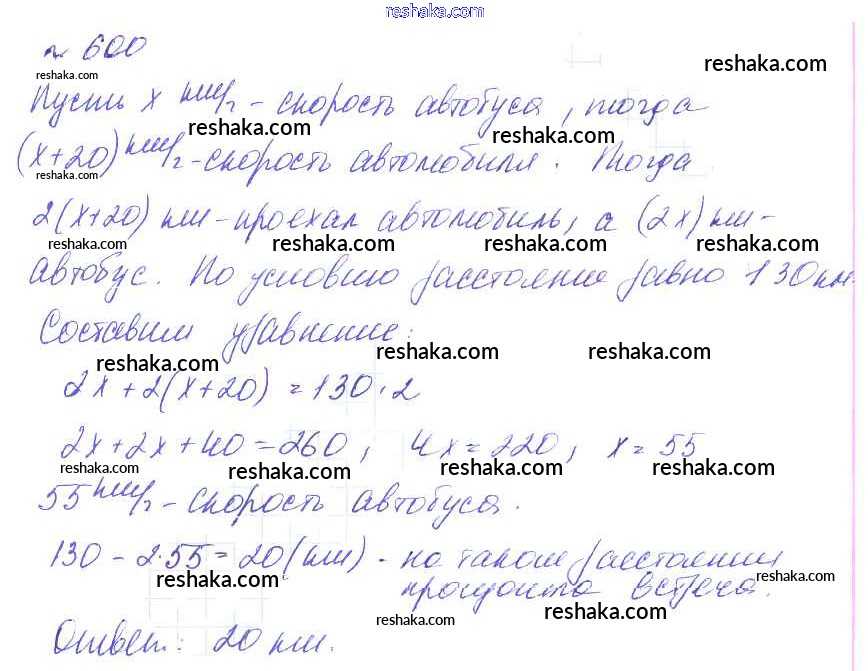 reshaka.com
№ 600
reshaka.com
reshaka.com
Пусть x км/ч - скорость автобуса, тогда
reshaka.com reshaka.com
(x+20) км/ч - скорость автомобиля. Тогда
reshaka.com
2(x+20) км - проехал автомобиль, а (2x) км -
reshaka.com reshaka.com reshaka.com reshaka.com
автобус. По условию расстояние равно 130 км.
Составим уравнение:
reshaka.com reshaka.com reshaka.com
2x + 2(x+20) = 130 · 2
2x + 2x + 40 = 260, 4x = 220, x = 55
reshaka.com reshaka.com reshaka.com reshaka.com
55 км/ч - скорость автобуса.
130 - 2·55 = 20 (км) - на таком расстоянии
reshaka.com reshaka.com
произойдет встреча.
reshaka.com reshaka.com
Ответ: 20 км.